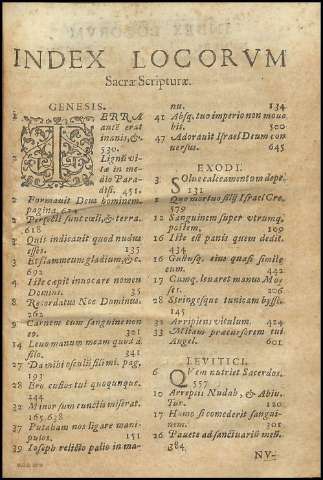 INDEX LOCORVM
Sacræ Scripturæ.
GENESIS.
TERRA
autē erat
inanis, &c.
530.
Lignū vi-
tæ in me-
dio Para-
disi. 451.
2 Formauit Deus hominem.
pagina
2 Perfecti sunt cæli, & terra.
618
3 Quis indicauit quod nudus
esses. 135
3 Et flammeum gladium, &c.
692
4 Iste cæpit inuocare nomen
Domini. 35
8 Recordatus Noe Dominus.
262
9 Carnem cum sanguine non
301
14 Leuo manum meam quod à
filo. 341
27 Da mihi osculū fili mi. pag.
193
28 Ero custos tui quoqunque.
244
32 Minor sum cunctis miserat.
165. 638
37 Putabam nos ligare mani-
pulos. 151
39 Ioseph relicto palio in ma-
nu. 134
41 Absq. tuo imperio non moue
bit. 500
47 Adorauit Israel Deum con
uersus. 645
EXODI.
3 Solue calceamentum de pe.
131
Quo mortuo filij Israel Cre.
579
12 Sanguinem super vtrumq.
postem. 109
16 Iste est panis quem dedit.
434
16 Gustusq. eius quasi simile
cum. 442
17 Cumq. leuaret manus Moy
ses. 206
28 Stringesque tunicam byssi.
145
32 Arripiens vitulum. 424
33 Mittam præcursorem tui
Angel. 601
LEVITICI.
6 QVem nutriet Sacerdos.
577
10 Arreptis Nadab, & Abiu.
Tur. 120
17 Homo si comederit sangui-
nem. 301
26 Pauete ad sanctuariū meū.
384
NV-